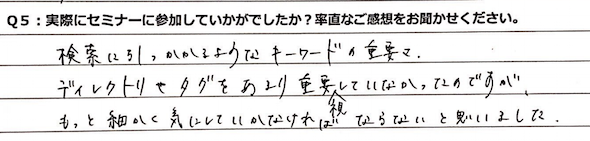 Q5：実際にセミナーに参加していかがでしたか？率直なご感想をお聞かせください。
検索に引っかかるようなキーワードが重要で、
ディレクトリやタグをあまり重要視していなかったのですが、
もっと細かく気にしていかなければならないと思いました。